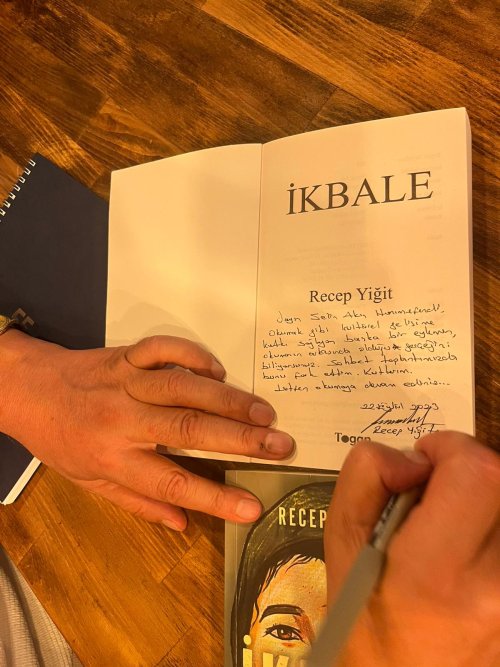 İKBALE
Recep Yiğit
Sayın Seda Akın Hanımefendi,
Okumak gibi kültürel gelişime
katkı sağlayan başka bir eylemin,
okumanın olduğu gerçeğini
biliyorsunuz. Sohbet toplantımızda
bunu fark ettim. Kutlarım.
Lütfen okumaya devam ediniz...
22 Eylül 2023
Recep Yiğit
Togan
RECEP
İK